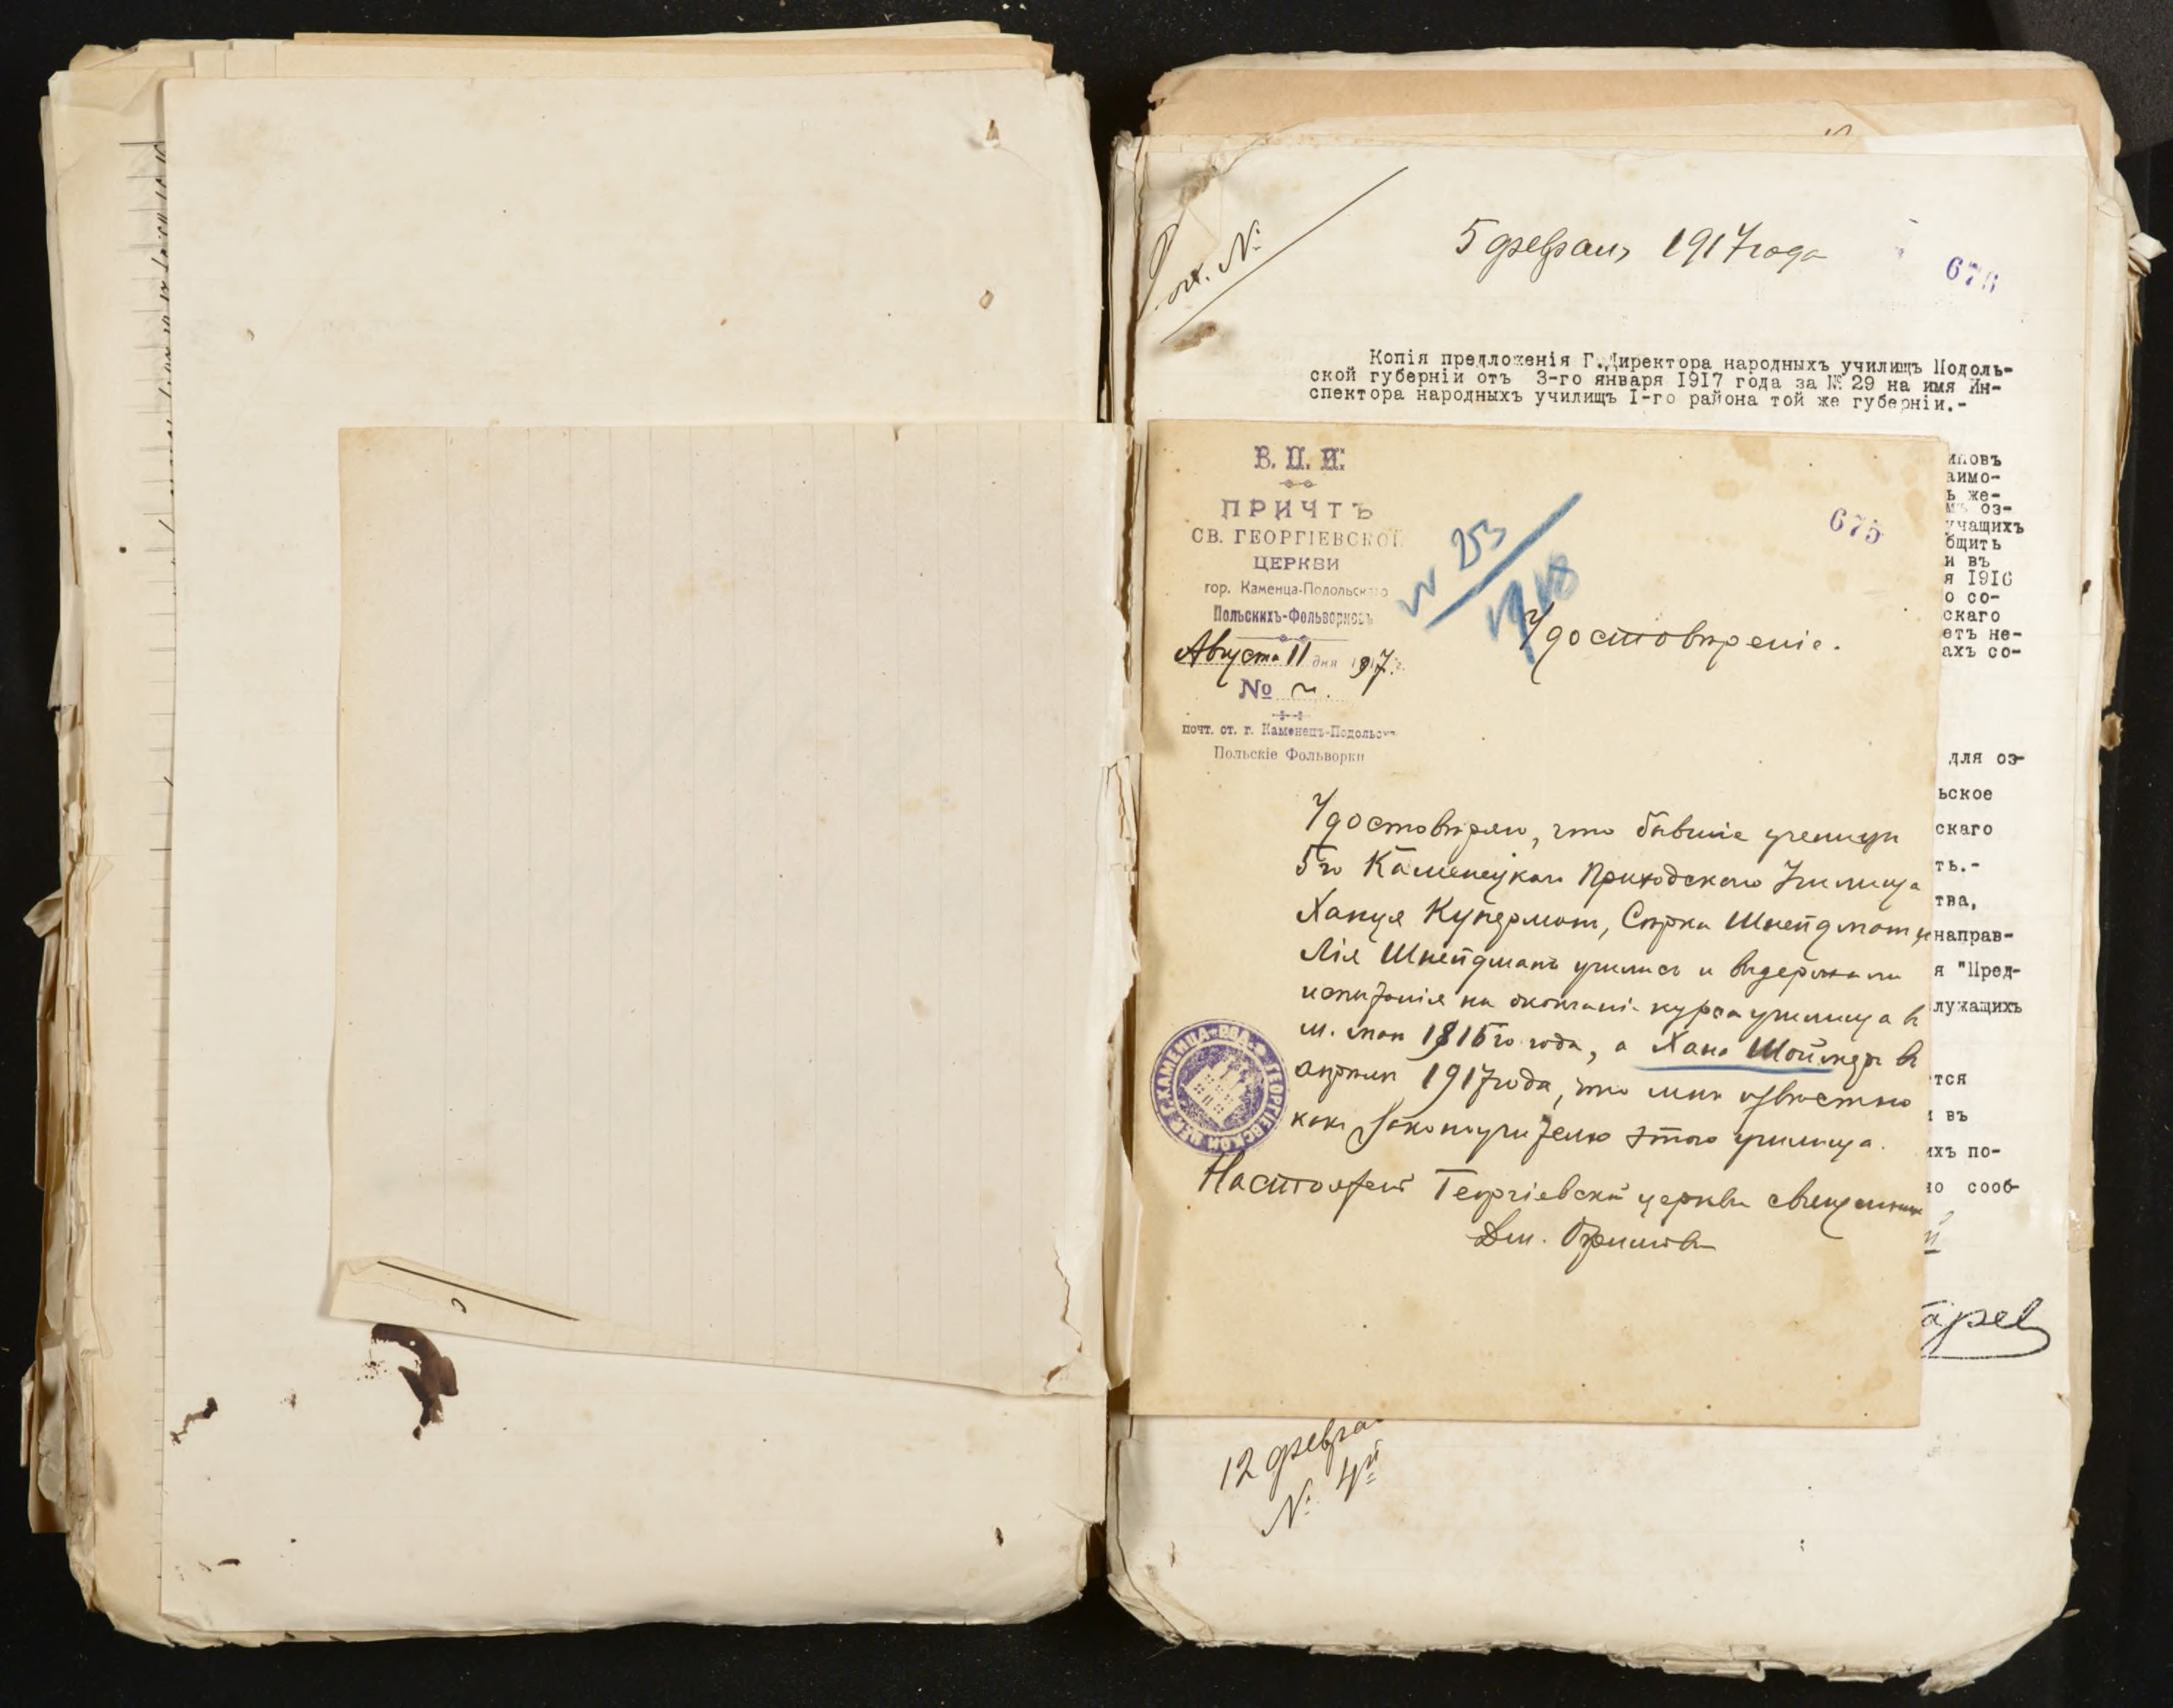 Вх. №
5 февраля 1917 года
676
Копія предложенія Г.Директора народныхъ училищъ Подоль-
ской губерніи отъ 3-го января 1917 года за № 29 на имя Ин-
спектора народныхъ училищъ I-го района той же губерніи.-
В. П. И.
ПРИЧТЪ
СВ. ГЕОРГІЕВСКОЙ
ЦЕРКВИ
гор. Каменца-Подольскаго
Польскихъ-Фольворковъ
Августа 11 дня 1917 г.
№
почт. ст. г. Каменецъ-Подольскъ
Польскіе Фольворки
№ 23
675
Удостовѣреніе.
Удостовѣряю, что бывшіе ученицы
5го Каменецкаго Приходскаго Училища
Ханця Куперманъ, Сырка Шнейдманъ и
Лія Шнейдманъ учились и выдержали
испытанія на окончаніе курса училища въ
м. маѣ 1915го года, а Хана Шоймеръ въ
апрѣлѣ 1917 года, что мнѣ извѣстно
какъ Законоучителю этого училища.
Настоятель Георгіевской церкви священникъ
Дм.
Г. КАМЕНЦА-ПОД. ГЕОРГІЕВСКОЙ ЦЕР.
иковъ
аимо-
ь же-
мъ оз-
учащихъ
бщить
и въ
я 1916
о со-
скаго
етъ не-
ахъ со-
для оз-
ьское
скаго
ть.-
тва,
направ-
я "Пред-
лужащихъ
тся
и въ
ихъ по-
но сооб-
12 февра
№ 4й